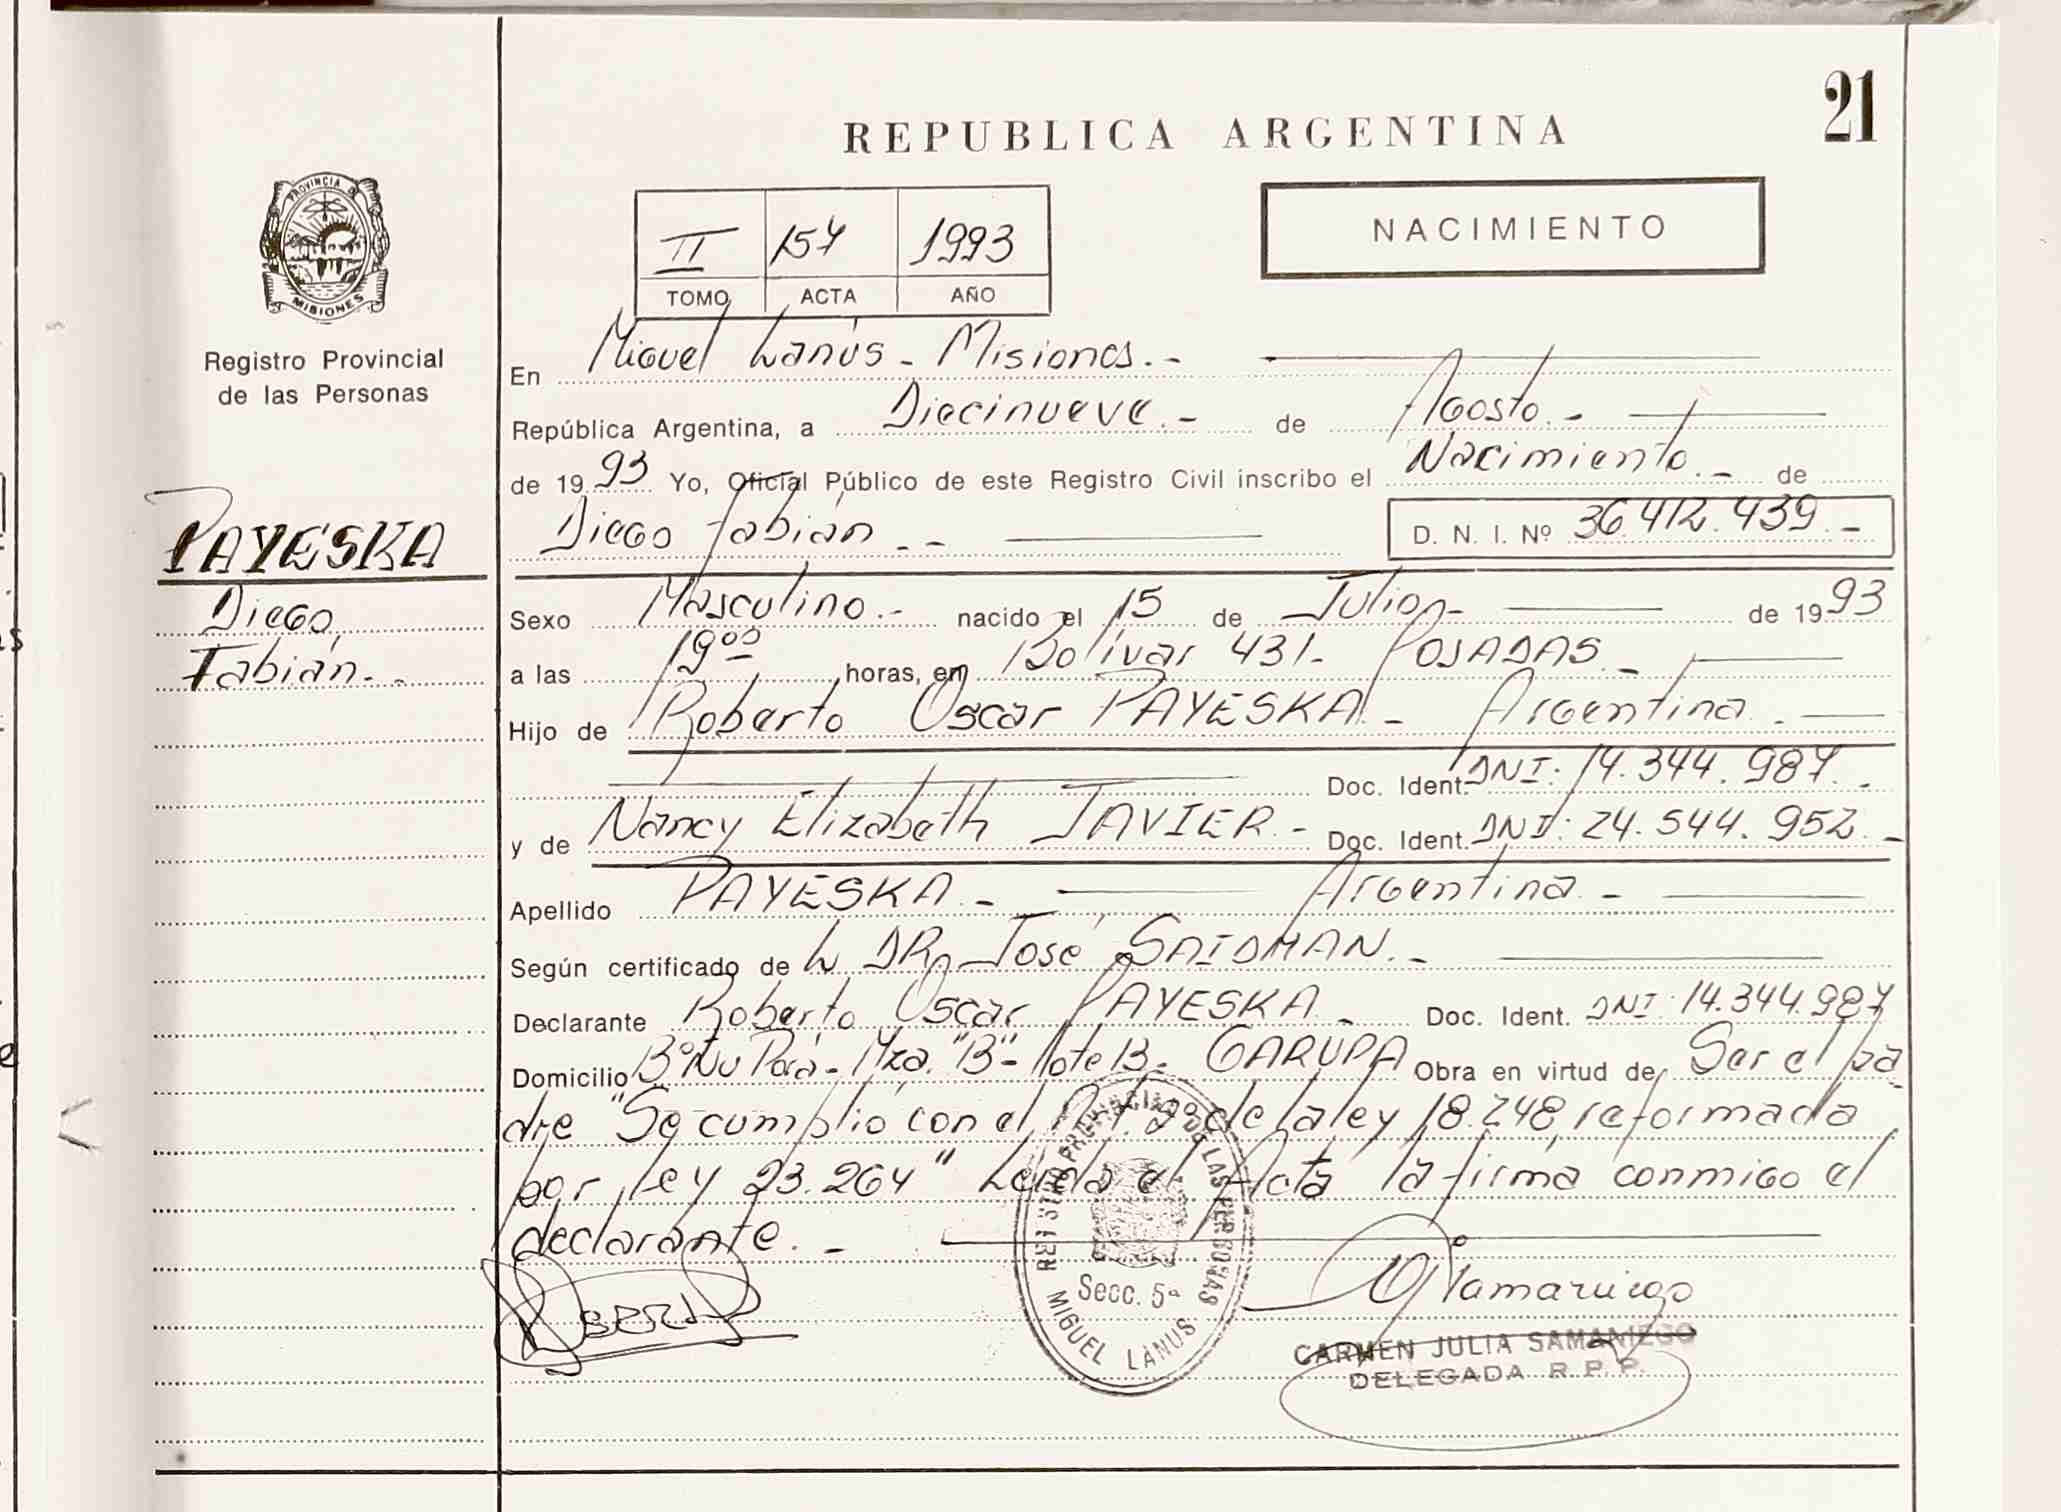 21
REPUBLICA ARGENTINA
PROVINCIA DE
MISIONES
Registro Provincial
de las Personas
II 157 1993
TOMO ACTA AÑO
NACIMIENTO
En Miguel Lanús - Misiones.-
República Argentina, a Diecinueve.- de Agosto.-
de 1993 Yo, Oficial Público de este Registro Civil inscribo el Nacimiento.- de
Diego Fabián.-- D. N. I. Nº 36.412.439.-
PAYESKA
Diego
Fabián.-.
Sexo Masculino.- nacido el 15 de Julio.- de 1993
a las 19⁰⁰ horas, en Bolívar 431- POSADAS.-
Hijo de Roberto Oscar PAYESKA.- Argentina.-
Doc. Ident. DNI: 14.344.987.-
y de Nancy Elizabeth JAVIER.- Doc. Ident. DNI: 24.544.952.-
Apellido PAYESKA.- Argentina.-
Según certificado de L DR. José SAIDMAN.-
Declarante Roberto Oscar PAYESKA.- Doc. Ident. DNI: 14.344.987
Domicilio Bº Ñu Porá- Mza. "B"- lote 13- GARUPA Obra en virtud de Ser el pa
dre "Se cumplió con el Art. 2º de la ley 18.248, reformada
por ley 23.264" Leída el Acta la firma conmigo el
declarante.-
REGISTRO PROVINCIAL DE LAS PERSONAS
Secc. 5ª
MIGUEL LANUS
CARMEN JULIA SAMANIEGO
DELEGADA R.P.P.